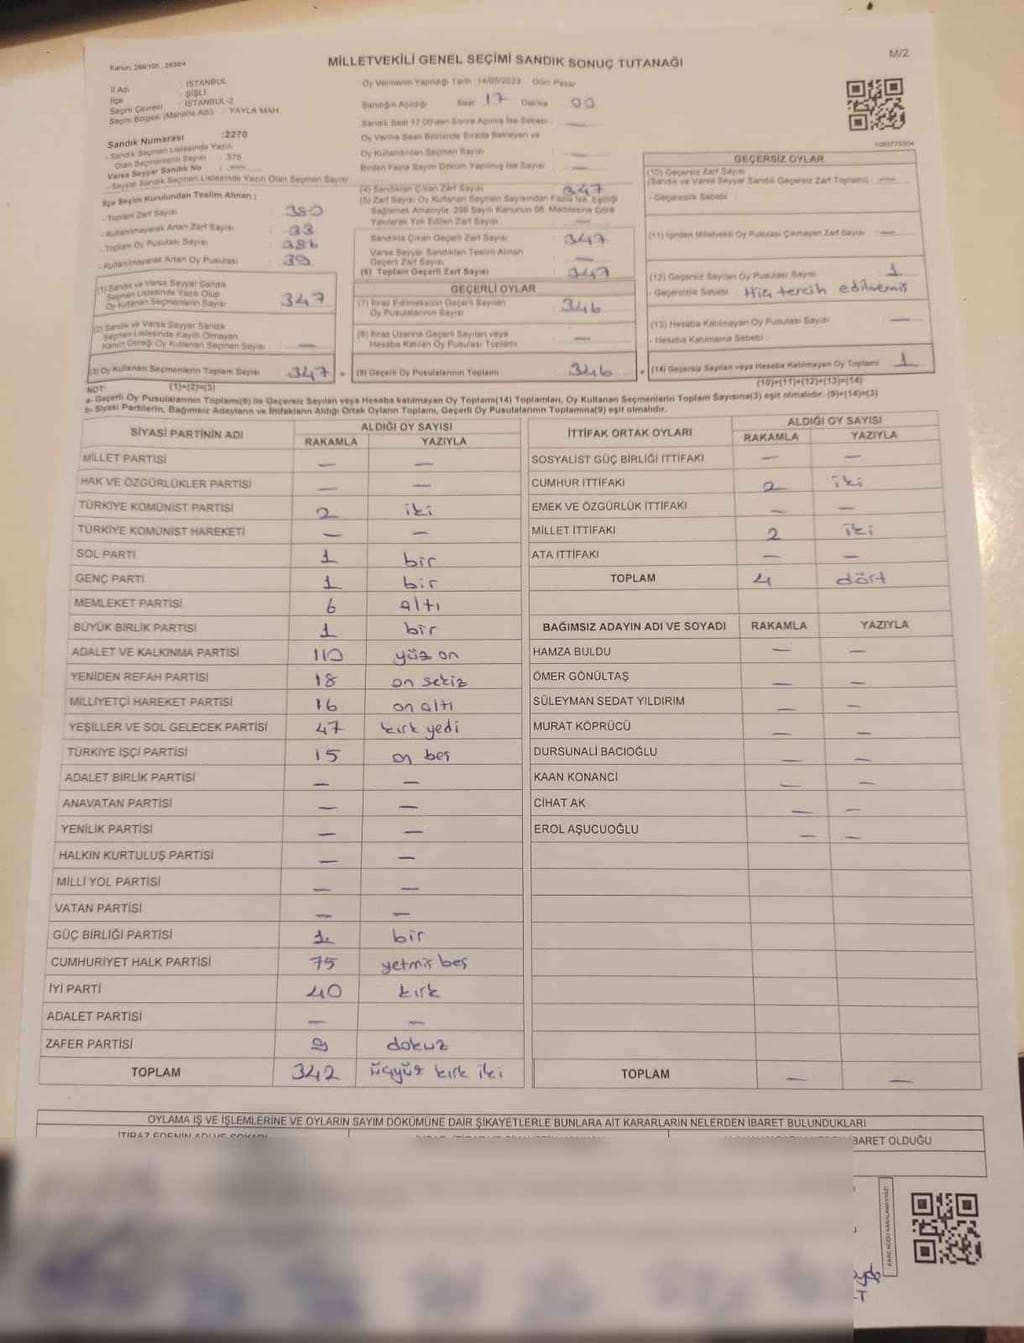 Kanun: 298/105 , 2839/4
MİLLETVEKİLİ GENEL SEÇİMİ SANDIK SONUÇ TUTANAĞI
M/2
İl Adı : İSTANBUL
İlçe : ŞİŞLİ
Seçim Çevresi : İSTANBUL-2
Seçim Bölgesi (Mahalle Adı) : YAYLA MAH.
Oy Vermenin Yapıldığı Tarih : 14/05/2023 Gün: Pazar
Sandığın Açıldığı Saat 17 Dakika 00
Sandık Saat 17:00'den Sonra Açılmış İse Sebebi —
Oy Verme Saati Bitiminde Sırada Bekleyen ve
Oy Kullandırılan Seçmen Sayısı —
Birden Fazla Sayım Döküm Yapılmış İse Sayısı —
Sandık Numarası :2270
- Sandık Seçmen Listesinde Yazılı
Olan Seçmenlerin Sayısı : 375
Varsa Seyyar Sandık No : —
- Seyyar Sandık Seçmen Listesinde Yazılı Olan Seçmen Sayısı
İlçe Seçim Kurulundan Teslim Alınan ;
- Toplam Zarf Sayısı 380
- Kullanılmayarak Artan Zarf Sayısı 33
- Toplam Oy Pusulası Sayısı
- Kullanılmayarak Artan Oy Pusulası 39
(1) Sandık ve Varsa Seyyar Sandık
Seçmen Listesinde Yazılı Olup
Oy Kullanan Seçmenlerin Sayısı 347
(2) Sandık ve Varsa Seyyar Sandık
Seçmen Listesinde Kayıtlı Olmayan
Kanun Gereği Oy Kullanan Seçmen Sayısı —
(3) Oy Kullanan Seçmenlerin Toplam Sayısı 347
(4) Sandıktan Çıkan Zarf Sayısı 347
(5) Zarf Sayısı Oy Kullanan Seçmen Sayısından Fazla İse, Eşitliği
Sağlamak Amacıyla, 298 Sayılı Kanunun 98. Maddesine Göre
Yakılarak Yok Edilen Zarf Sayısı —
Sandıkta Çıkan Geçerli Zarf Sayısı 347
Varsa Seyyar Sandıktan Teslim Alınan
Geçerli Zarf Sayısı —
(6) Toplam Geçerli Zarf Sayısı 347
GEÇERLİ OYLAR
(7) İtiraz Edilmeksizin Geçerli Sayılan
Oy Pusulalarının Sayısı 346
(8) İtiraz Üzerine Geçerli Sayılan veya
Hesaba Katılan Oy Pusulası Toplamı —
(9) Geçerli Oy Pusulalarının Toplamı 346
GEÇERSİZ OYLAR
(10) Geçersiz Zarf Sayısı
(Sandık ve Varsa Seyyar Sandık Geçersiz Zarf Toplamı) —
- Geçersizlik Sebebi
(11) İçinden Milletvekili Oy Pusulası Çıkmayan Zarf Sayısı —
(12) Geçersiz Sayılan Oy Pusulası Sayısı 1
- Geçersizlik Sebebi Hiç tercih edilmemiş
(13) Hesaba Katılmayan Oy Pusulası Sayısı —
- Hesaba Katılmama Sebebi
(14) Geçersiz Sayılan veya Hesaba Katılmayan Oy Toplamı 1
NOT: (1)+(2)=(3)
(10)+(11)+(12)+(13)=(14)
a- Geçerli Oy Pusulalarının Toplamı(9) ile Geçersiz Sayılan veya Hesaba katılmayan Oy Toplamı(14) Toplamları, Oy Kullanan Seçmenlerin Toplam Sayısına(3) eşit olmalıdır. (9)+(14)=(3)
b- Siyasi Partilerin, Bağımsız Adayların ve İttifakların Aldığı Ortak Oyların Toplamı, Geçerli Oy Pusulalarının Toplamına(9) eşit olmalıdır.
SİYASİ PARTİNİN ADI ALDIĞI OY SAYISI
RAKAMLA YAZIYLA
MİLLET PARTİSİ — —
HAK VE ÖZGÜRLÜKLER PARTİSİ — —
TÜRKİYE KOMÜNİST PARTİSİ 2 iki
TÜRKİYE KOMÜNİST HAREKETİ — —
SOL PARTİ 1 bir
GENÇ PARTİ 1 bir
MEMLEKET PARTİSİ 6 altı
BÜYÜK BİRLİK PARTİSİ 1 bir
ADALET VE KALKINMA PARTİSİ 110 yüz on
YENİDEN REFAH PARTİSİ 18 on sekiz
MİLLİYETÇİ HAREKET PARTİSİ 16 on altı
YEŞİLLER VE SOL GELECEK PARTİSİ 47 kırk yedi
TÜRKİYE İŞÇİ PARTİSİ 15 on beş
ADALET BİRLİK PARTİSİ — —
ANAVATAN PARTİSİ — —
YENİLİK PARTİSİ — —
HALKIN KURTULUŞ PARTİSİ — —
MİLLİ YOL PARTİSİ — —
VATAN PARTİSİ — —
GÜÇ BİRLİĞİ PARTİSİ 1 bir
CUMHURİYET HALK PARTİSİ 75 yetmiş beş
İYİ PARTİ 40 kırk
ADALET PARTİSİ — —
ZAFER PARTİSİ 9 dokuz
TOPLAM 342 üçyüz kırk iki
İTTİFAK ORTAK OYLARI ALDIĞI OY SAYISI
RAKAMLA YAZIYLA
SOSYALİST GÜÇ BİRLİĞİ İTTİFAKI — —
CUMHUR İTTİFAKI 2 iki
EMEK VE ÖZGÜRLÜK İTTİFAKI — —
MİLLET İTTİFAKI 2 iki
ATA İTTİFAKI — —
TOPLAM 4 dört
BAĞIMSIZ ADAYIN ADI VE SOYADI RAKAMLA YAZIYLA
HAMZA BULDU — —
ÖMER GÖNÜLTAŞ — —
SÜLEYMAN SEDAT YILDIRIM — —
MURAT KÖPRÜCÜ — —
DURSUNALİ BACIOĞLU — —
KAAN KONANCİ — —
CİHAT AK — —
EROL AŞUCUOĞLU — —
TOPLAM — —
OYLAMA İŞ VE İŞLEMLERİNE VE OYLARIN SAYIM DÖKÜMÜNE DAİR ŞİKAYETLERLE BUNLARA AİT KARARLARIN NELERDEN İBARET BULUNDUKLARI
İTİRAZ EDENİN ADI VE SOYADI
İBARET OLDUĞU